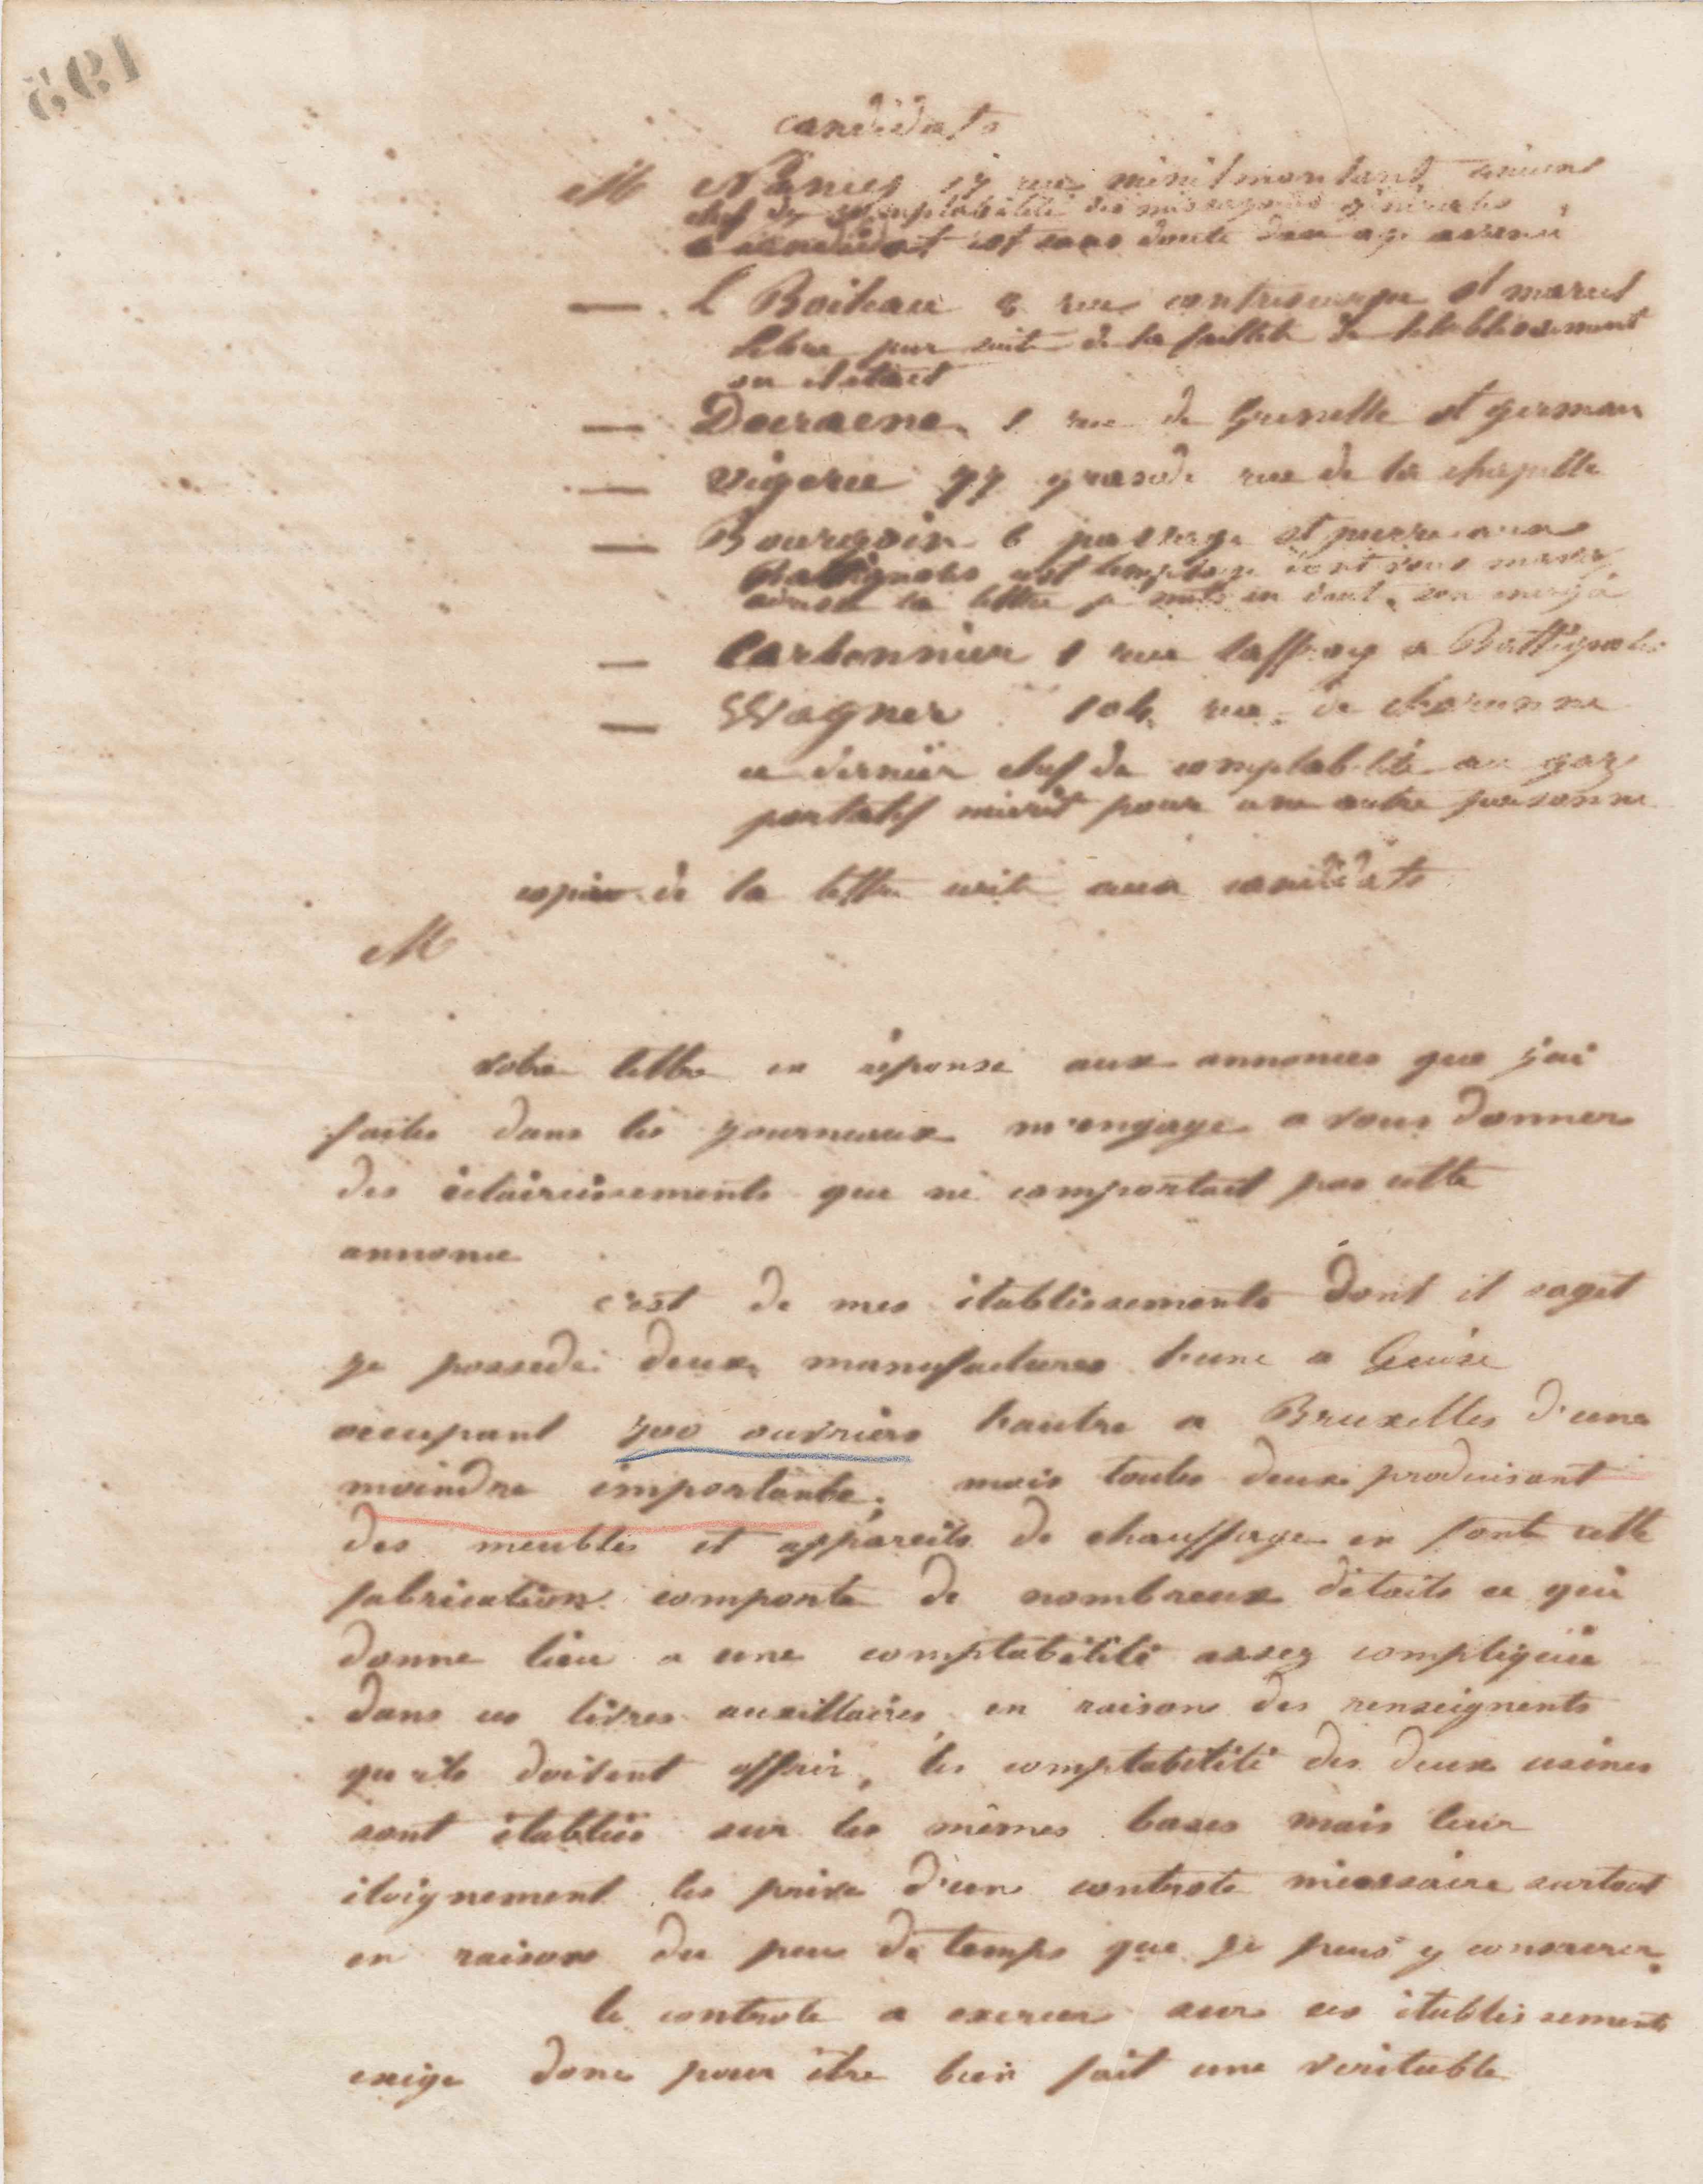 195
candidats
M Nanies 17 rue menilmontant ancien
chef de comptabilité des messageries générales
ce candidat est sans doute d'un age avancé
— L Boileau 8 rue contrescarpe st marcel
libre par suite de la faillite de letablissement
ou il était
— Douraene 1 rue de Grenelle st germain
— Vigerie 77 grande rue de la chapelle
— Bourgoin 6 passage st pierre aux
Batignoles est
sa lettre je mets en doute son
— Carbonnier 1 rue a Battignoles
— Wagner 104 rue de charonne
ce dernier chef de comptabilité au gaz
portatif écrit pour une autre personne
copie de la lettre écrite aux candidats
M
votre lettre en réponse aux annonces que j'ai
faites dans les journeaux m'engage a vous donner
des éclaircissements que ne comportait pas cette
annonce
c'est de mes établissements dont il sagit
je possede deux manufactures l'une a Guise
occupant 700 ouvriers l'autre a Bruxelles d'une
moindre importante, mais toutes deux produisant
des meubles et appareils de chauffage en fonte cette
fabrication comporte de nombreux détails ce qui
donne lieu a une comptabilité assez compliquée
dans ces livres auxillaires en raison des renseignents
qu'ils doivent offrir, les comptabilité des deux usines
sont établies sur les mêmes bases mais leur
éloignement les prive d'un controle nécessaire surtout
en raison du peu de temps que je peus y consacrer.
le controle a exercer sur ces établissements
exige donc pour être bien fait une véritable